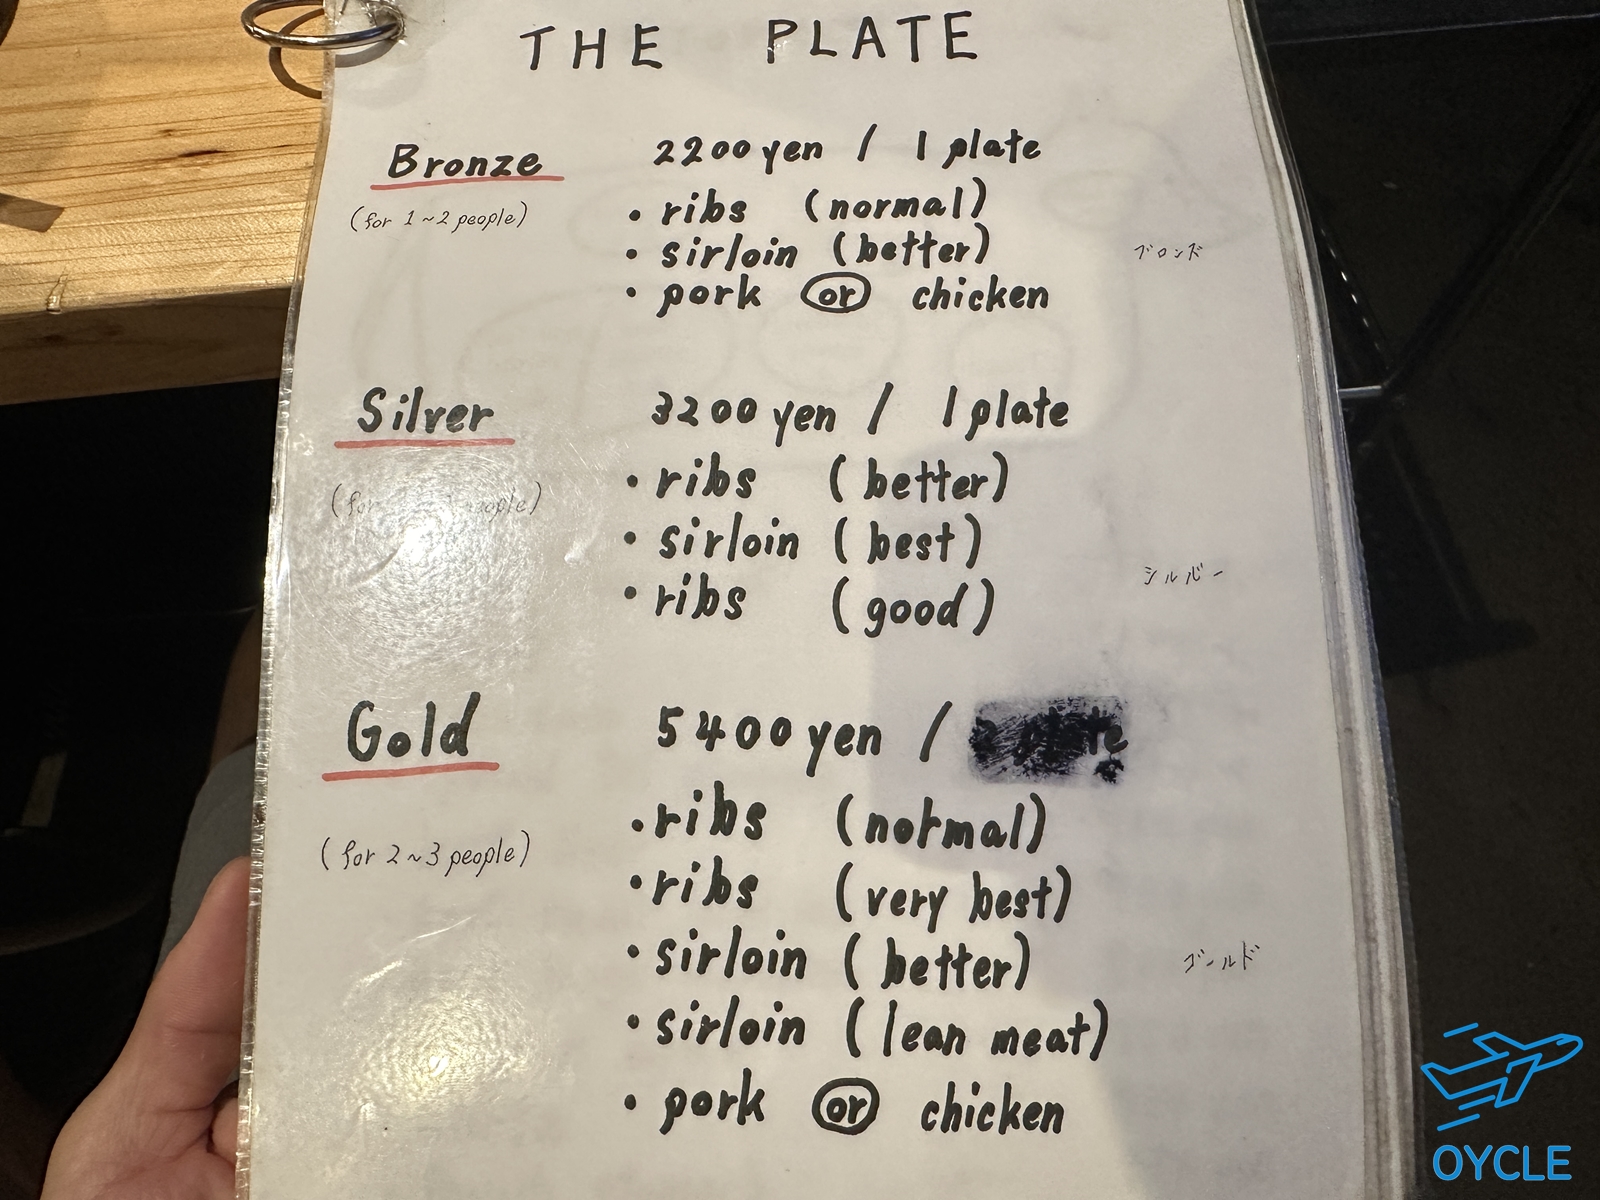 THE PLATE
Bronze 2200 yen / 1 plate
(for 1~2 people)
・ribs (normal)
・sirloin (better)
ブロンド
・pork or chicken
Silver 3200 yen / 1 plate
(for people)
・ribs (better)
・sirloin (best)
シルバー
・ribs (good)
Gold 5400 yen /
・ribs (normal)
(for 2~3 people)
・ribs (very best)
・sirloin (better)
ゴールド
・sirloin (lean meat)
・pork or chicken
OYCLE